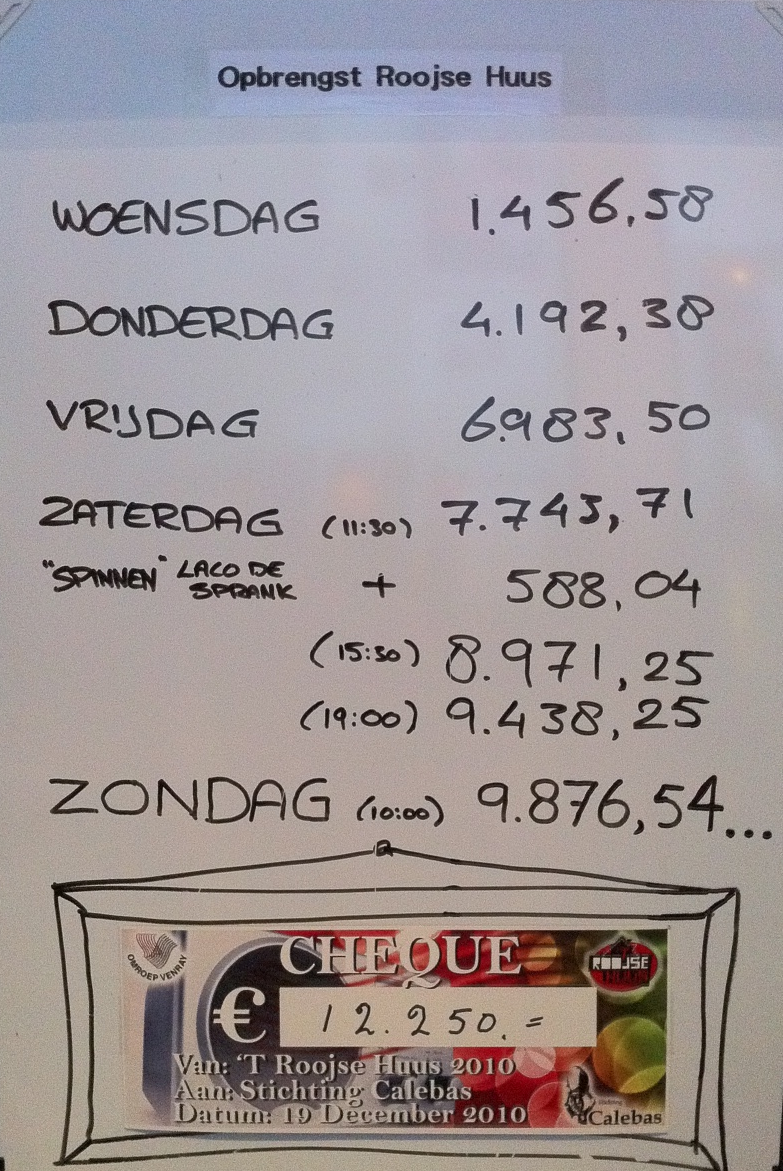 Opbrengst Roojse Huus
WOENSDAG 1.456,58
DONDERDAG 4.192,38
VRIJDAG 6.983,50
ZATERDAG (11:30) 7.743,71
"SPINNEN" LACO DE
SPRANK + 588,04
(15:30) 8.971,25
(19:00) 9.438,25
ZONDAG (10:00) 9.876,54...
CHEQUE
OMROEP VENRAY
ROOJSE
€ 12.250,=
Van: 'T Roojse Huus 2010
Aan: Stichting Calebas
Datum: 19 December 2010
Stichting
Calebas